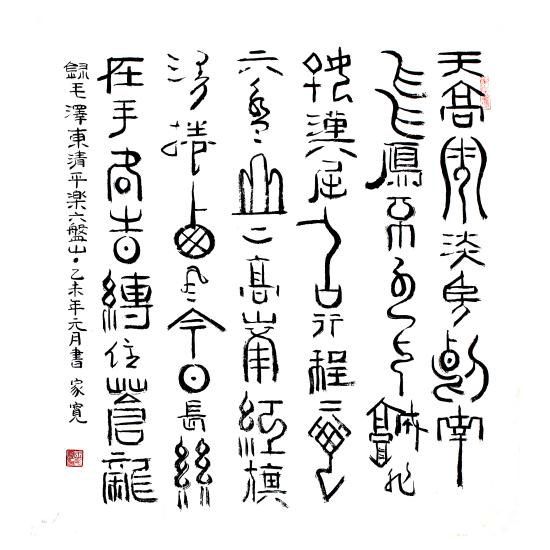 天高雲淡望斷南
飛鴈不到長城非
好漢屈指行程二萬
六盤山上高峯紅旗
漫捲西風今日長纓
在手何時縛住蒼龍
録毛澤東清平楽六盤山·乙未年元月書 家寬